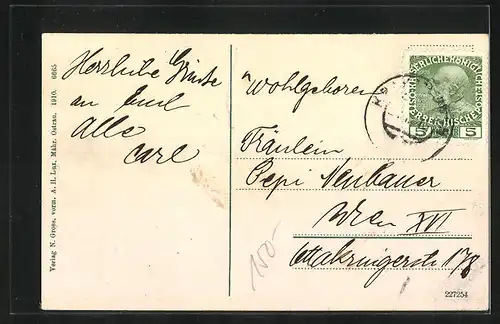 Verlag N. Gross, vorm. A. H. Lux, Mähr. Ostrau. 1910. 6665
Herzliche Grüße
an Euch
Alle
Carl
KAISERLICHE KÖNIGLICHE
ÖSTERREICHISCHE POST
5 5
Wohlgeboren
Fräulein
Pepi Neubauer
Wien XVI
Ottakringerstr. 178
150-
227254